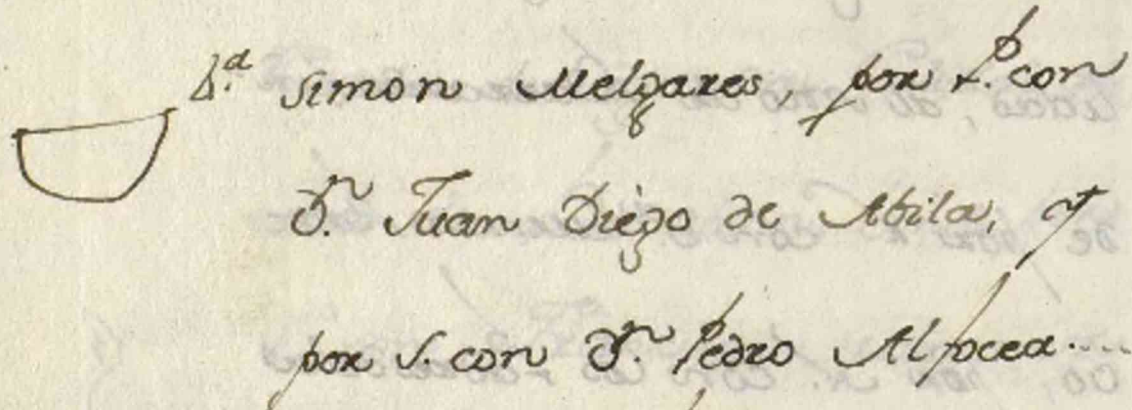 L.d Simon Melgares, por P.e con
D.n Juan Diego de Abila, y
por S. con D.n Pedro Alpcea....